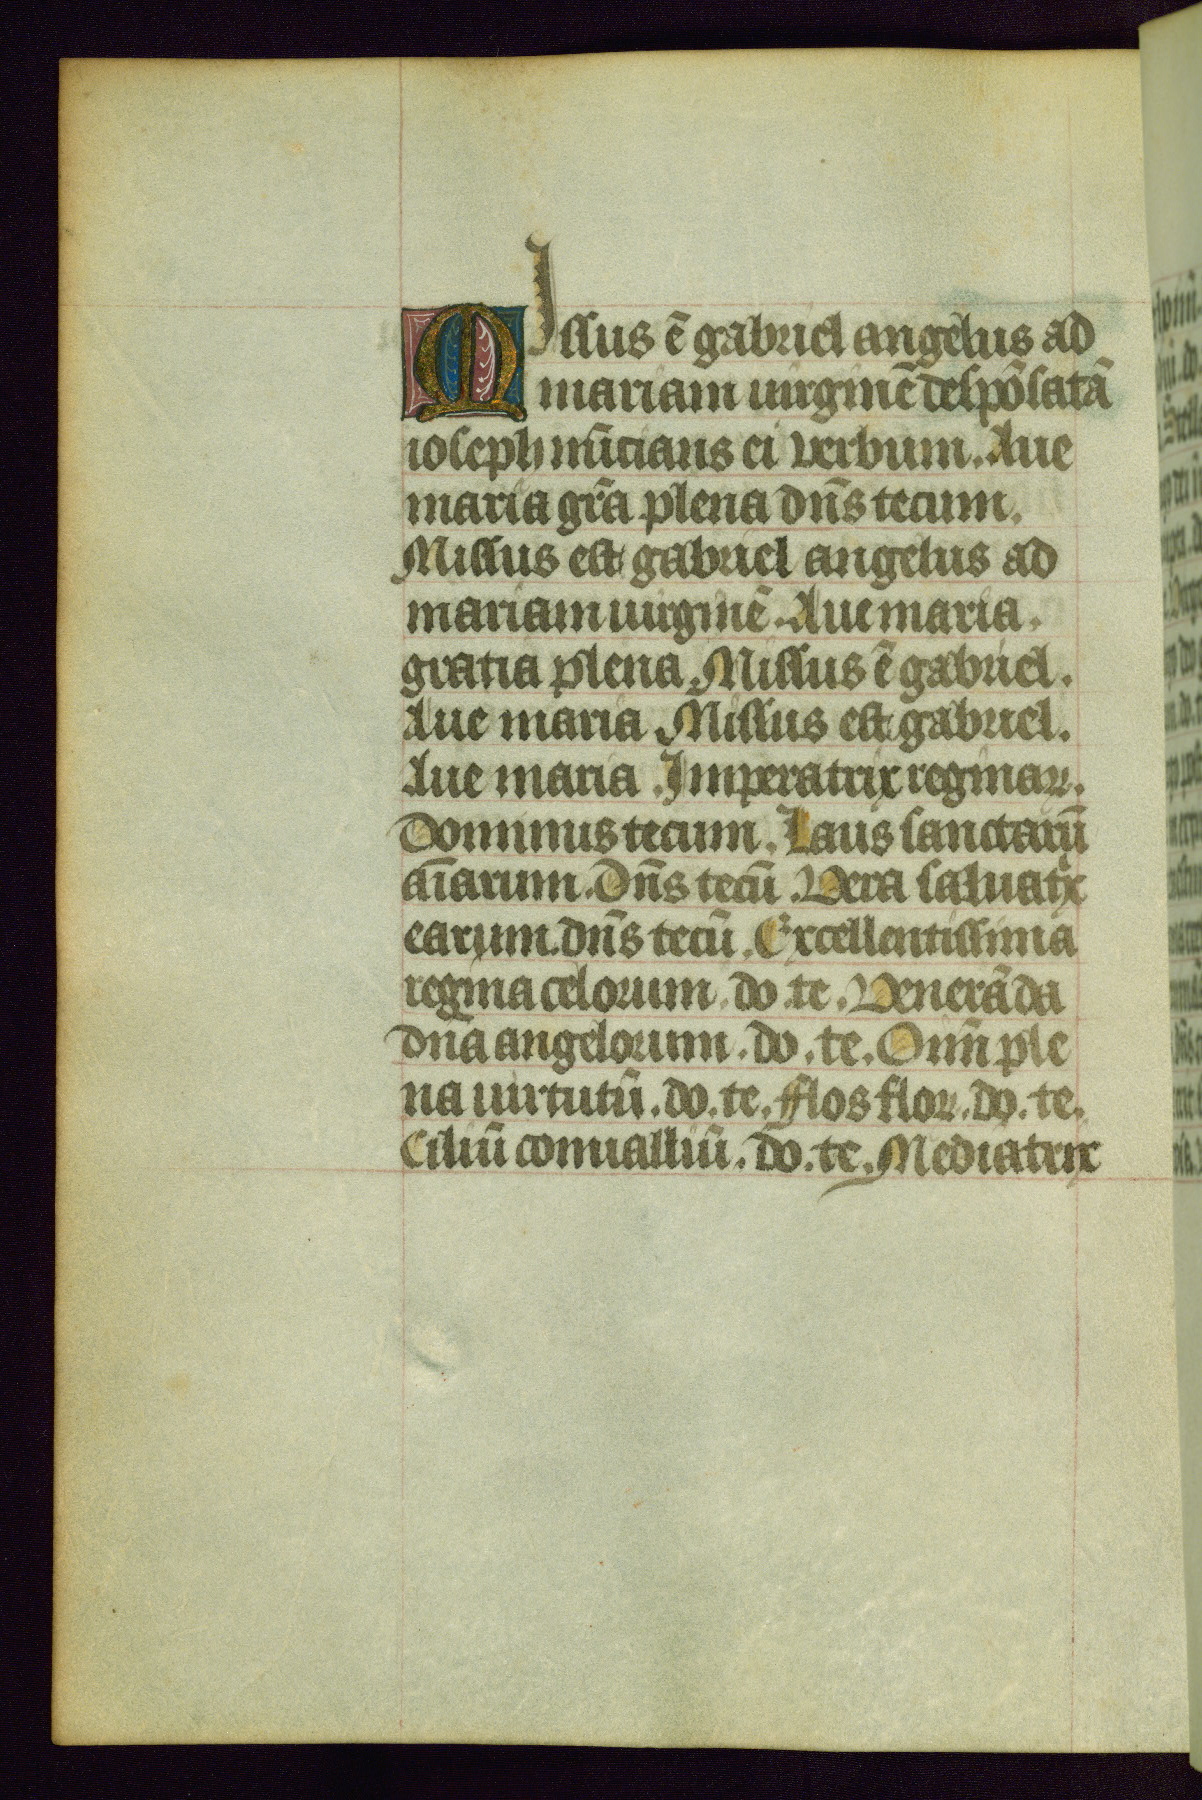 Missus ē gabriel angelus ad
mariam uirginē despōsatā
ioseph nūcians ei verbum. Aue
maria gr̄a plena dn̄s tecum.
Missus est gabriel angelus ad
mariam uirginē. Aue maria.
gratia plena. Missus ē gabriel.
Aue maria. Missus est gabriel.
Aue maria. Imperatrix reginaꝝ.
Dominus tecum. Laus sanctarū
aīarum. Dn̄s tecū. Vera saluatͥx
earum. dn̄s tecū. Excellentissima
regina celorum. do. te. Venerāda
dn̄a angelorum. do. te. Oīm ple
na uirtutū. do. te. fflos floꝝ. do. te.
Liliū conualliū. do. te. Mediatrix